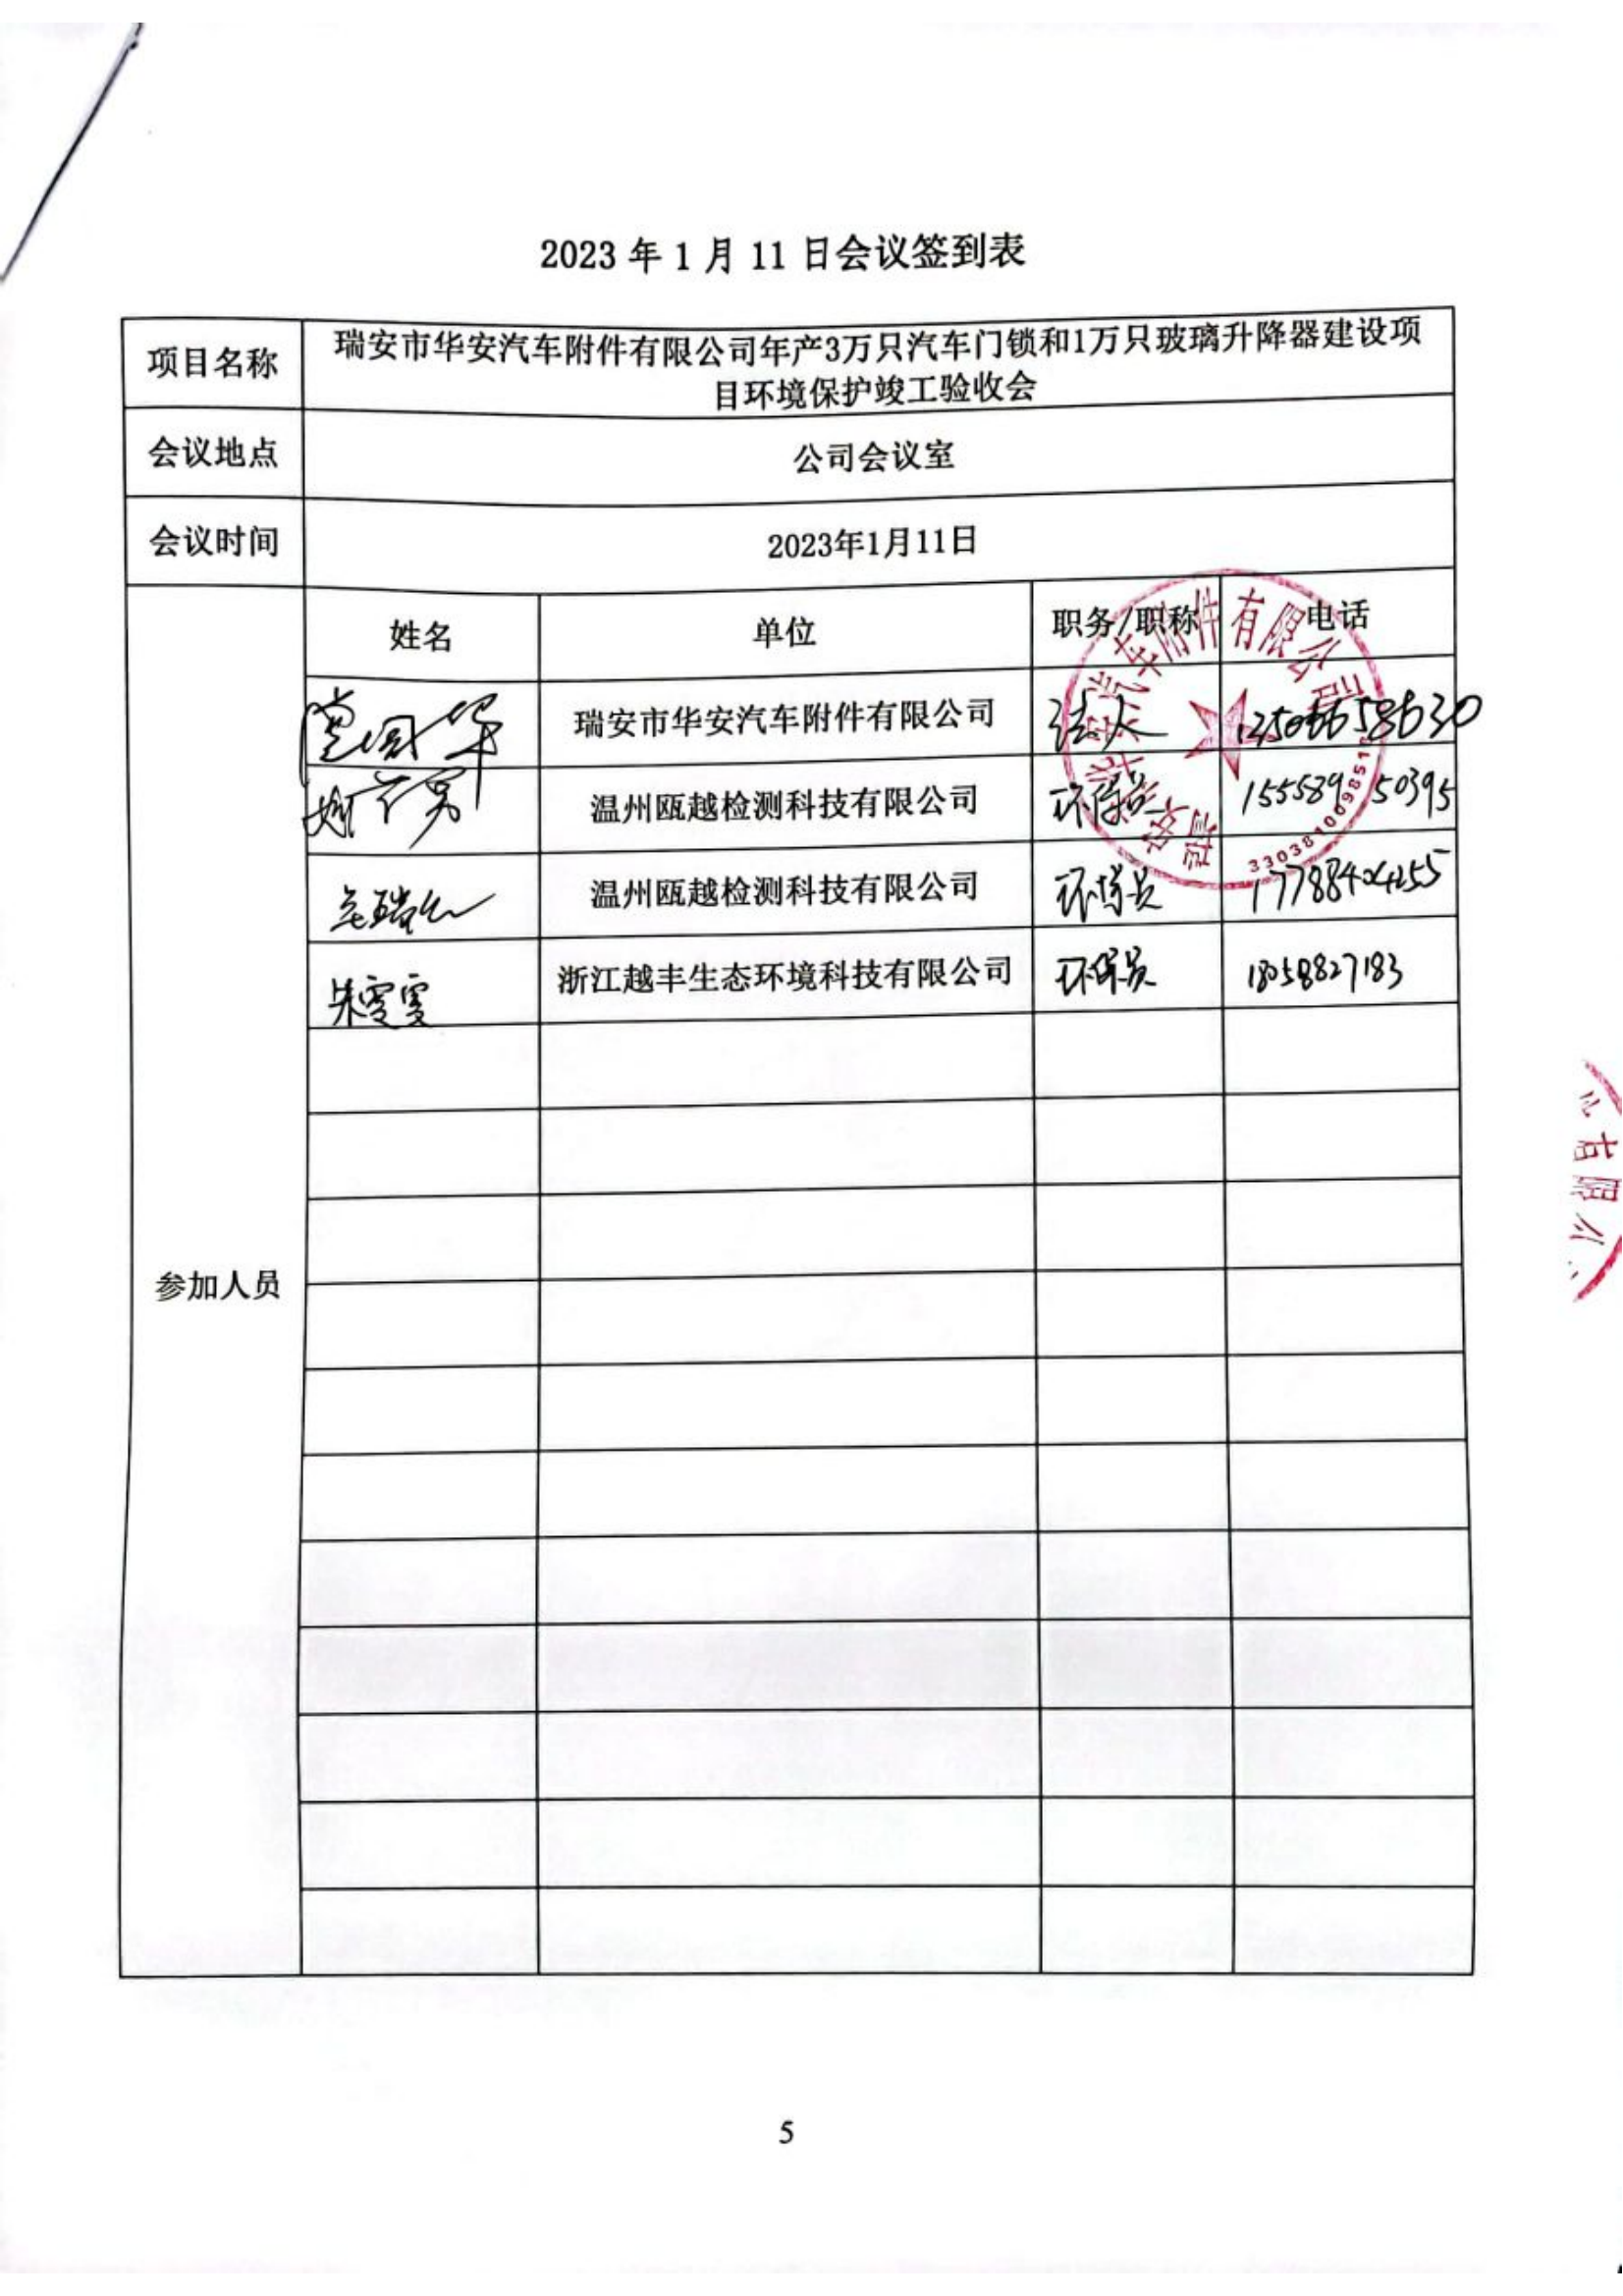 2023 年 1 月 11 日会议签到表
项目名称
瑞安市华安汽车附件有限公司年产3万只汽车门锁和1万只玻璃升降器建设项
目环境保护竣工验收会
会议地点
公司会议室
会议时间
2023年1月11日
参加人员
姓名 单位 职务/职称 电话
瑞安市华安汽车附件有限公司 法人
温州瓯越检测科技有限公司
温州瓯越检测科技有限公司 环保员 17788404255
朱雯雯 浙江越丰生态环境科技有限公司 环保员 18058827183
瑞安市华安汽车附件有限公司
有限
5